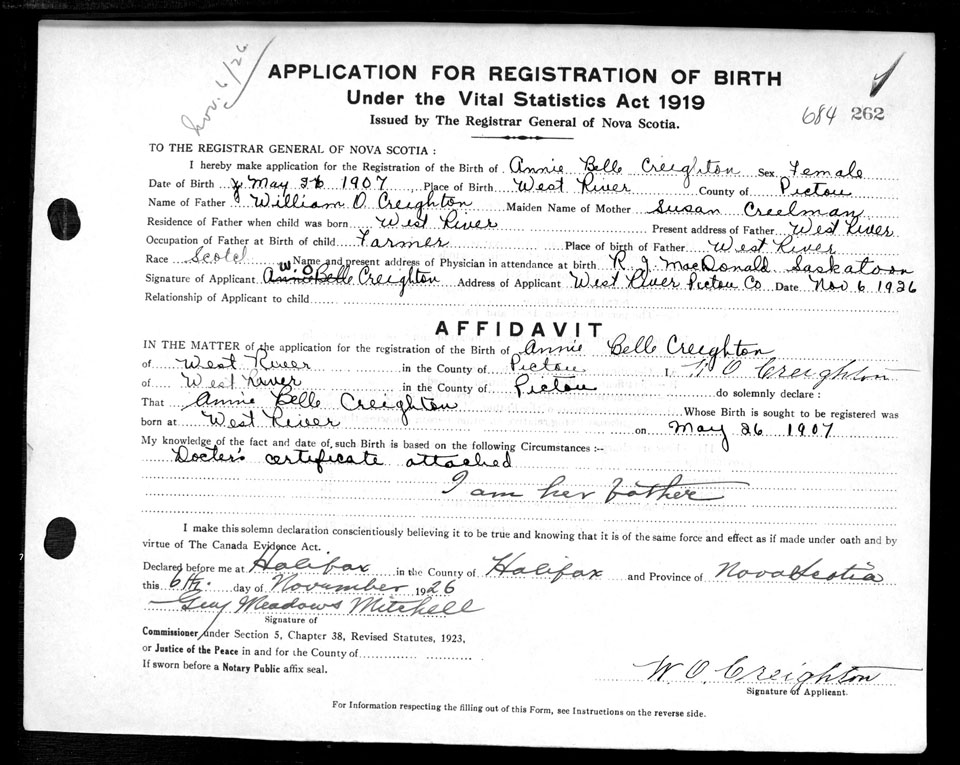 Nov. 6/26
APPLICATION FOR REGISTRATION OF BIRTH
Under the Vital Statistics Act 1919
684 262
Issued by The Registrar General of Nova Scotia.
TO THE REGISTRAR GENERAL OF NOVA SCOTIA :
I hereby make application for the Registration of the Birth of Annie Belle Creighton Sex Female
Date of Birth May 26 1907 Place of Birth West River County of Pictou
Name of Father William O. Creighton Maiden Name of Mother Susan Creelman
Residence of Father when child was born West River Present address of Father West River
Occupation of Father at Birth of child Farmer Place of birth of Father West River
Race Scotch Name and present address of Physician in attendance at birth R. J. MacDonald Saskatoon
Signature of Applicant W. O. Annie Belle Creighton Address of Applicant West River Pictou Co Date Nov 6 1926
Relationship of Applicant to child
AFFIDAVIT
IN THE MATTER of the application for the registration of the Birth of Annie Belle Creighton
of West River in the County of Pictou I, W O Creighton
of West River in the County of Pictou do solemnly declare :
That Annie Belle Creighton Whose Birth is sought to be registered was
born at West River on May 26 1907
My knowledge of the fact and date of such Birth is based on the following Circumstances :--
Docter's certificate attached
I am her father
I make this solemn declaration conscientiously believing it to be true and knowing that it is of the same force and effect as if made under oath and by
virtue of The Canada Evidence Act.
Declared before me at Halifax in the County of Halifax and Province of Nova Scotia
this 6th. day of November 1926
Guy Meadows Mitchell
Signature of
Commissioner under Section 5, Chapter 38, Revised Statutes, 1923,
or Justice of the Peace in and for the County of
If sworn before a Notary Public affix seal.
W. O. Creighton
Signature of Applicant.
For Information respecting the filling out of this Form, see Instructions on the reverse side.